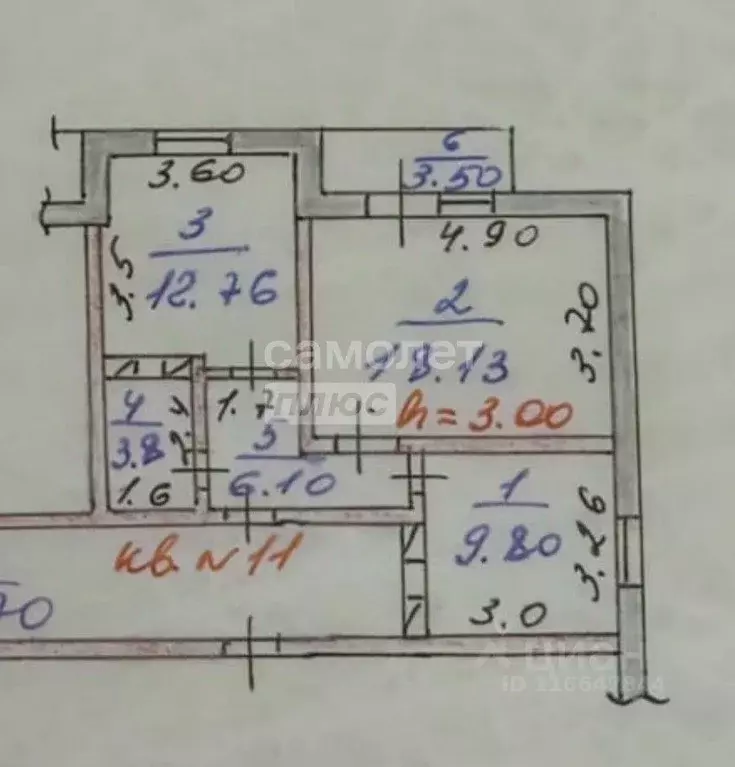 6
3.50
3.60
3
12.76
3.5
4.90
2
18.13
3.20
h=3.00
самолет
плюс
1.7
4
3.8
2.4
1.6
5
6.10
1
9.80
3.26
3.0
кв. N 11
70
ЦИАН